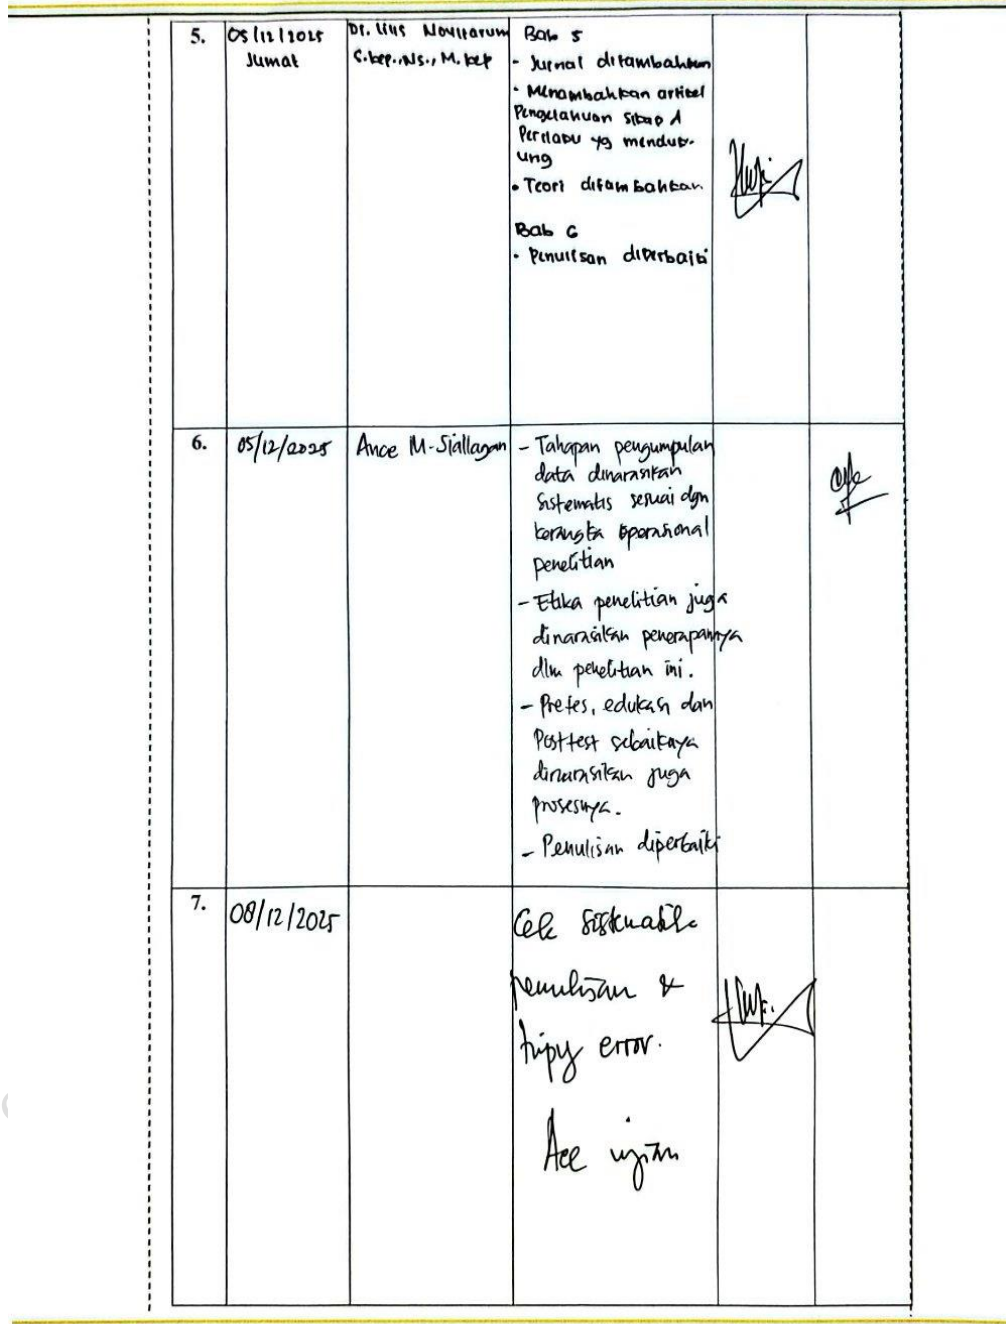 5.
05/12/2025
Jumat
Dr. Lilis Novitarum
S.kep.,Ns., M.kep
Bab 5
- Jurnal ditambahkan
• Menambahkan artikel
Pengetahuan Sikap &
Perilaku yg menduk-
ung
• Teori ditambahkan
Bab 6
• Penulisan diperbaiki
6.
05/12/2025
Ance M. Siallagan
- Tahapan pengumpulan
data dinarasikan
sistematis sesuai dgn
kerangka operasional
penelitian
- Etika penelitian juga
dinarasikan penerapannya
dlm penelitian ini.
- Pretes, edukasi dan
Posttest sebaiknya
dinarasikan juga
prosesnya.
- Penulisan diperbaiki
7.
08/12/2025
Cek sistematik
penulisan &
error.
Acc ujian